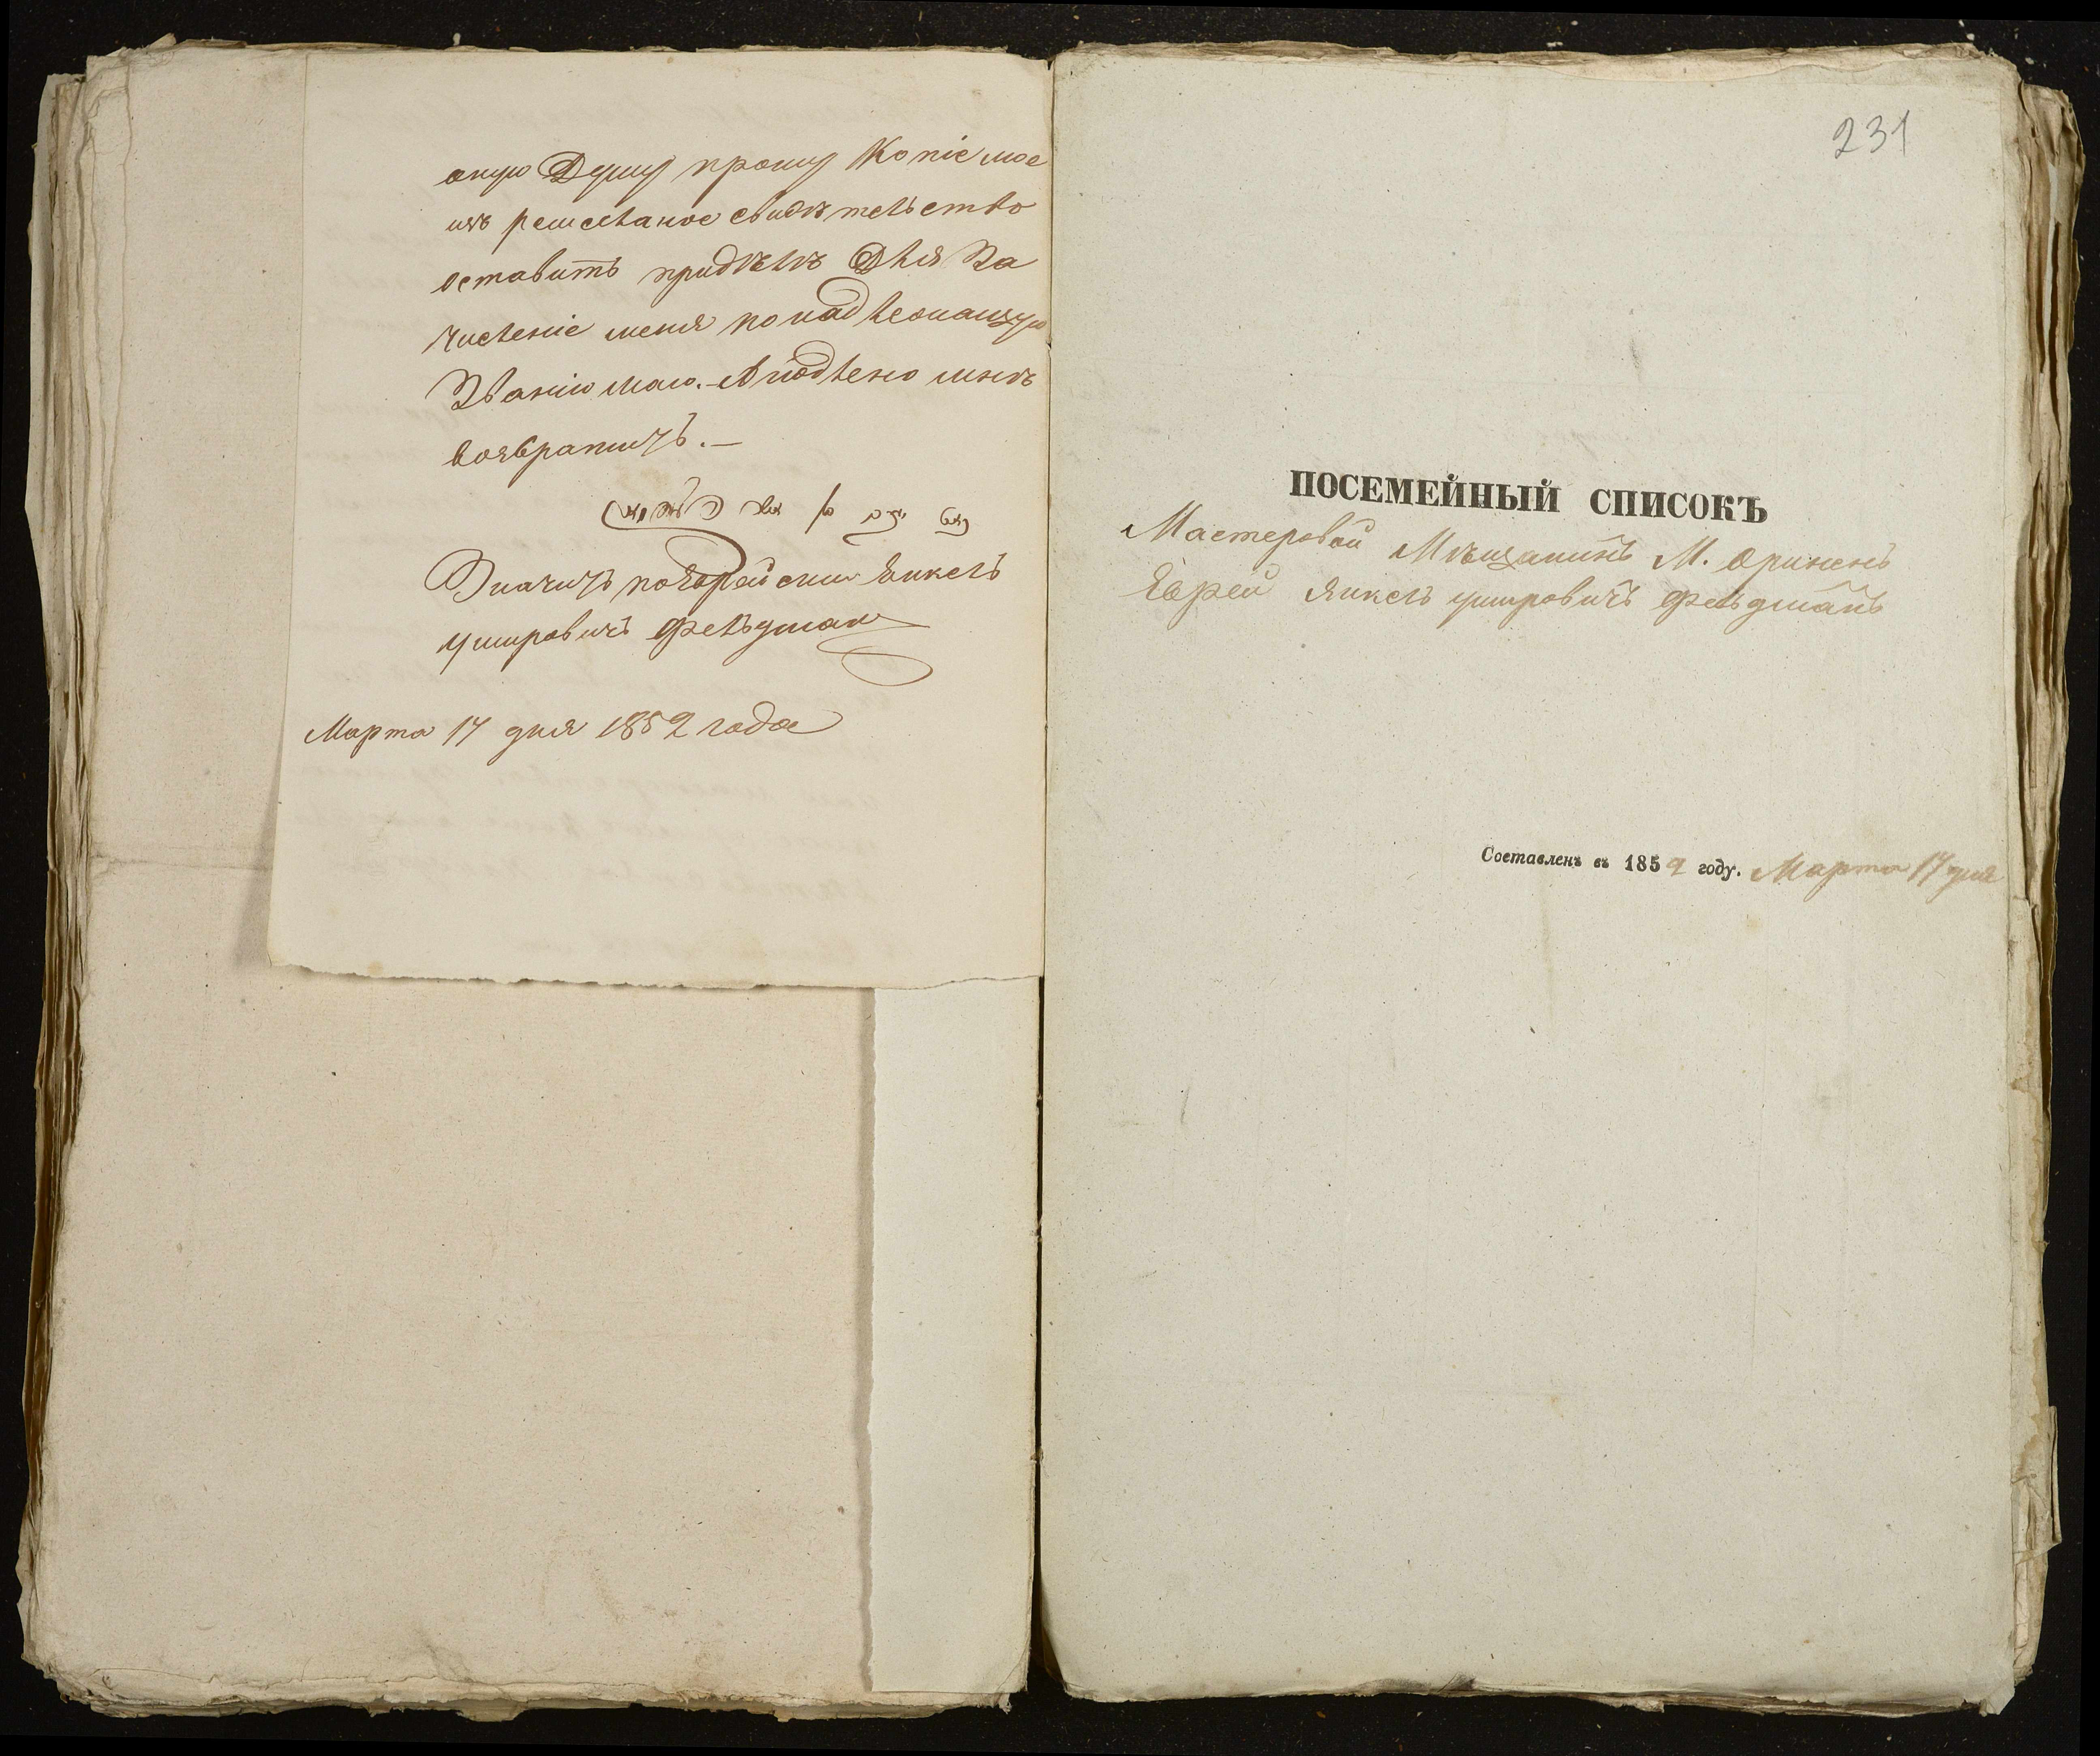 оную Душу прошу Копіе мое
изъ ремеселаное свидѣтельство
оставить придѣлѣ Для За
численіе меня по надлежащую
Званію маю. – А подлено мнѣ
возвратить. –
Значить поЕврейски Янкель
ушировичъ Фельдман
Марта 17 дня 1852 года
231
ПОСЕМЕЙНЫЙ СПИСОКЪ
Мастеровой Мѣщанинъ М. Орининъ
Еврей Янкель ушировичъ Фельдманъ
Составленъ въ 1852 году. Марта 17 дня